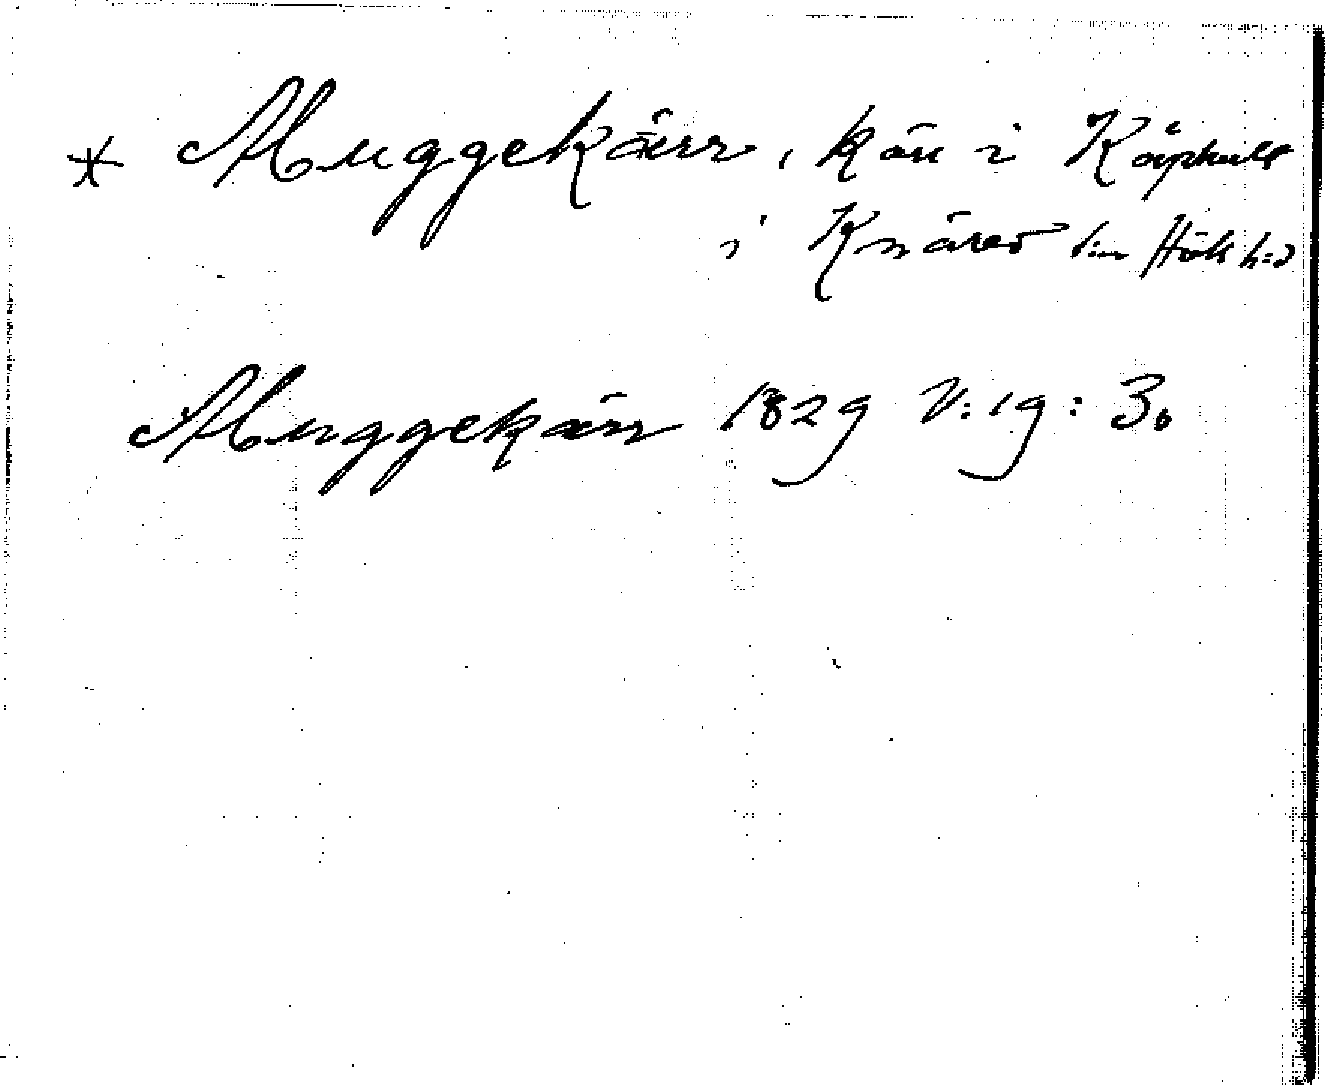 * Muggekärr, kärr i Kåphult
i Knäred s:n Hök h:d
Muggekärr 1829 V:19:30